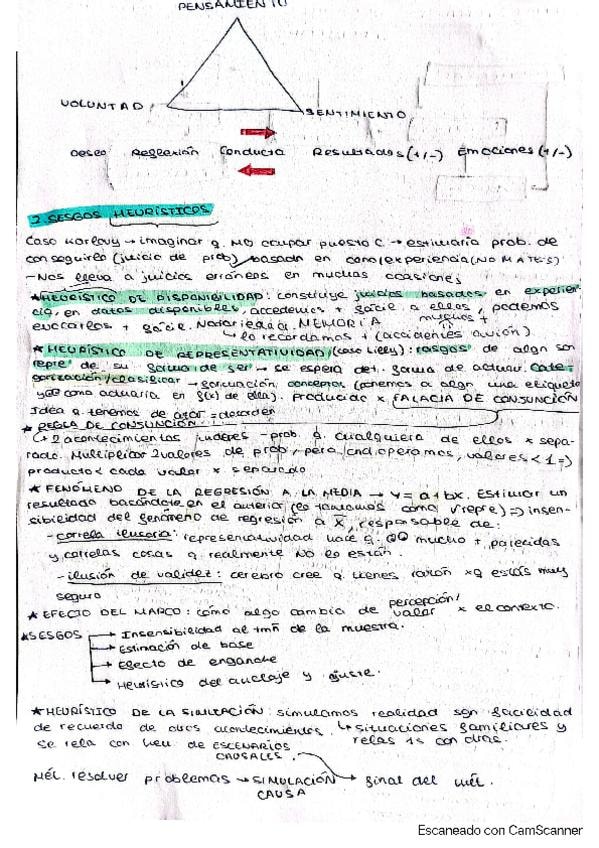 PENSAMIENTO
VOLUNTAD
SENTIMIENTO
Deseo Reflexión Conducta Resultados (+/-) Emociones (+/-)
2. SESGOS HEURÍSTICOS
Caso Karlovy → imaginar q. NO ocupar puesto C → estimaría prob. de
conseguirlo (juicio de prob) basada en cono/experiencia (NO MATES)
- Nos lleva a juicios erróneos en muchas ocasiones
★ HEURÍSTICO DE DISPONIBILIDAD: construye juicios basados en experien-
cia, en datos disponibles, accedemos + fácil a ellos, podemos
evocarlos + fácil. Notoriedad, MEMORIA
muchos +
↳ lo recordamos + (accidentes avión).
★ HEURÍSTICO DE REPRESENTATIVIDAD (caso Lilly): rasgos de algn son
repre de su forma de ser → se espera det. forma de actuar. Cate-
gorización/clasificar → formación conceptos (ponemos a algn una etiqueta
y cómo actuaría en f(x) de ella). Producido x FALACIA DE CONJUNCIÓN
Idea q. tenemos de azar = desorden
★ REGLA DE CONJUNCIÓN:
↳ 2 acontecimientos - prob. q. cualquiera de ellos x sepa-
rado. Multiplicar 2 valores de prob, pero cnd operamos, valores < 1 =)
producto < cada valor x separado
★ FENÓMENO DE LA REGRESIÓN A LA MEDIA → Y = a + bx. Estimar un
resultado basándote en el anterior (lo tomamos como V repre) =) insen-
sibilidad del fenómeno de regresión a X̄, responsable de:
- correla ilusoria: representatividad hace q. mucho + parecidas
y correlas cosas q realmente NO lo están.
- ilusión de validez: cerebro cree q tienes razón xq estás muy
seguro
★ EFECTO DEL MARCO: cómo algo cambia de percepción/valor x el contexto.
★ SESGOS → Insensibilidad al tmñ de la muestra.
→ Estimación de base
→ Efecto de enganche
→ Heurístico del anclaje y ajuste.
★ HEURÍSTICO DE LA SIMULACIÓN: simulamos realidad con facilidad
de recuerdo de otros acontecimientos. ↳ situaciones familiares y
se rela con heu de ESCENARIOS relas 1s con otras.
CAUSALES.
Mél. resolver problemas → SIMULACIÓN → final del mél.
CAUSA
Escaneado con CamScanner